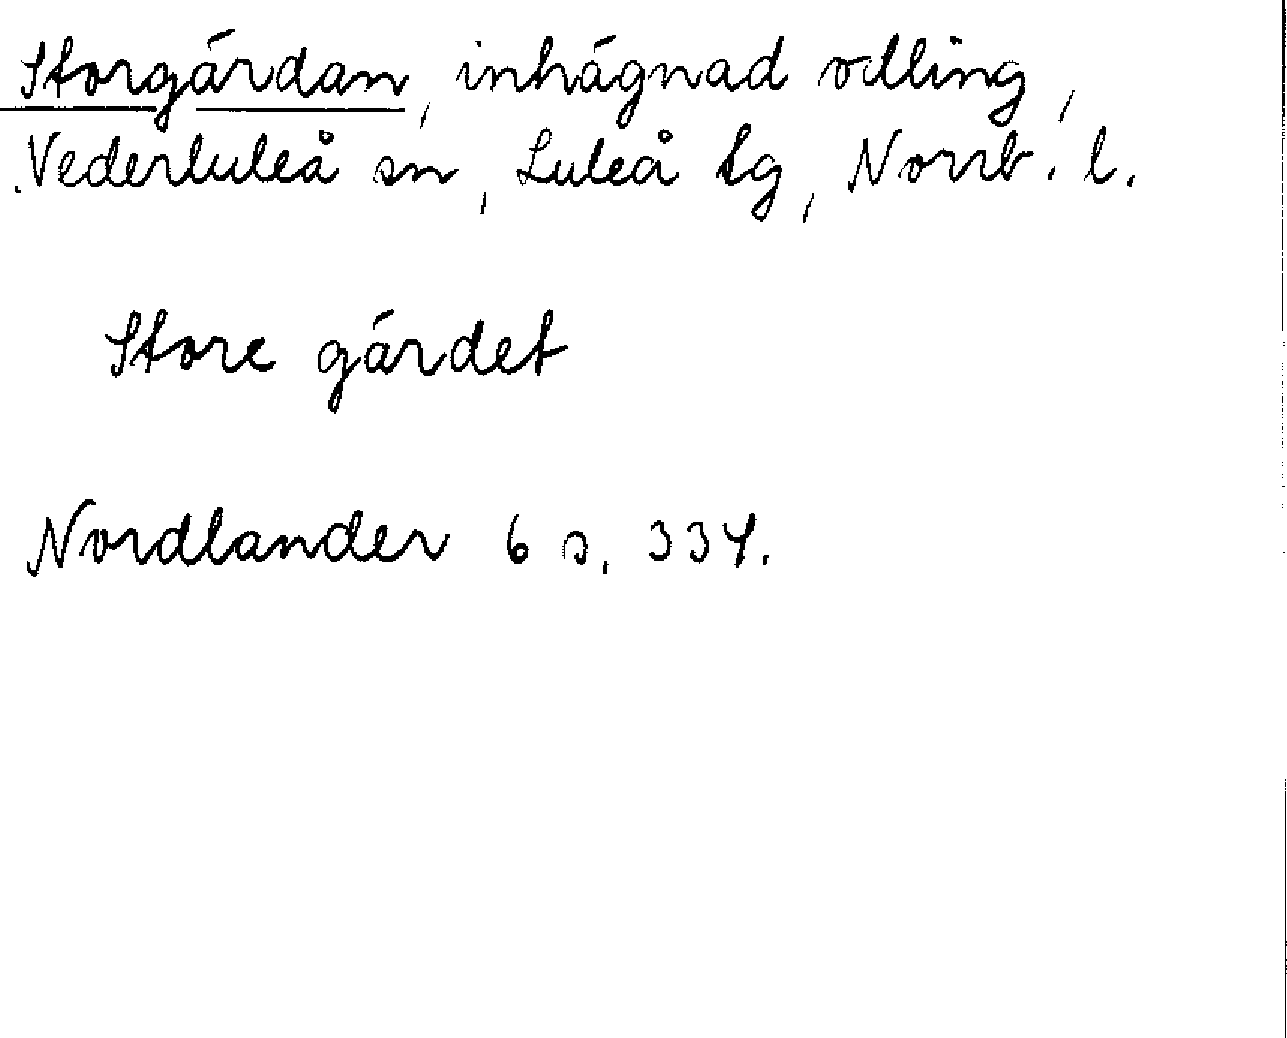 Storgärdan, inhägnad odling,
Nederluleå sn, Luleå tg, Norrb. l.
Store gärdet
Nordlander 6 s. 334.